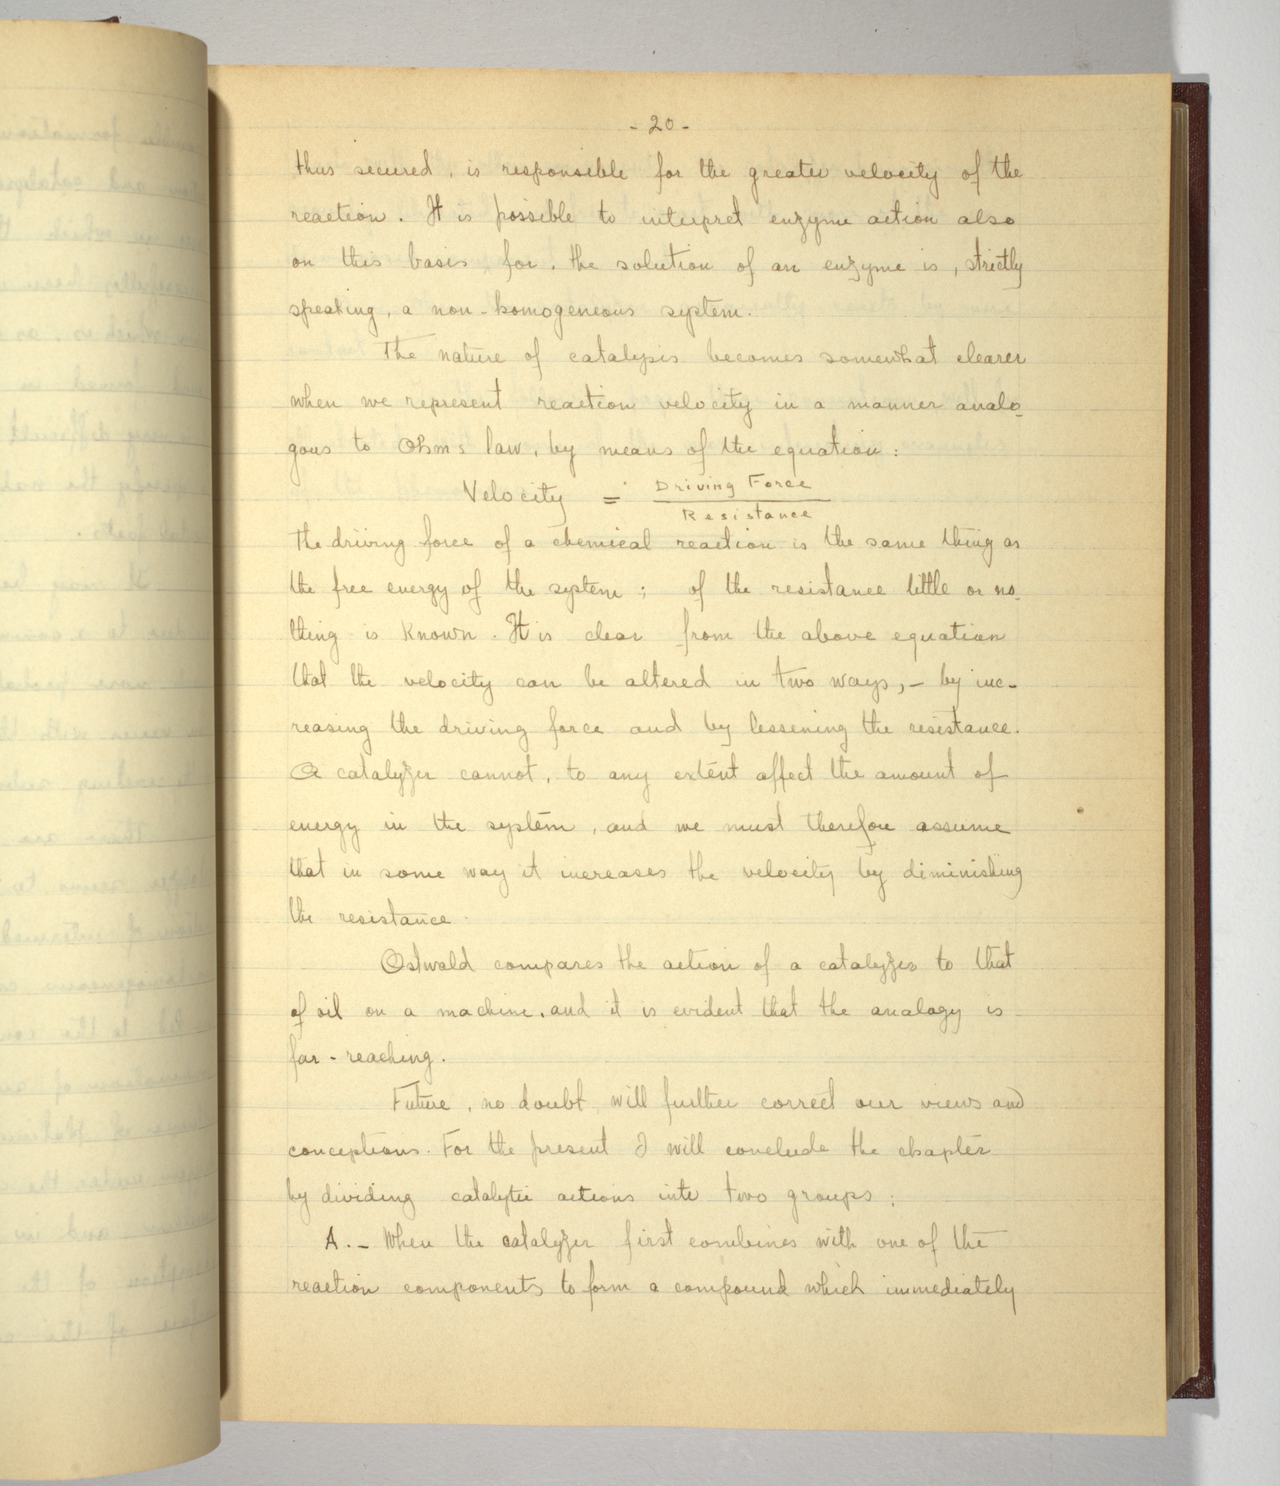 - 20 -
thus secured, is responsible for the greater velocity of the
reaction. It is possible to interpret enzyme action also
on this basis for, the solution of an enzyme is, strictly
speaking, a non-homogeneous system.
The nature of catalysis becomes somewhat clearer
when we represent reaction velocity in a manner analo-
gous to Ohm's law, by means of the equation:
Velocity = Driving Force
Resistance
The driving force of a chemical reaction is the same thing as
the free energy of the system; of the resistance little or no-
thing is known. It is clear from the above equation
that the velocity can be altered in two ways,- by inc-
reasing the driving force and by lessening the resistance.
A catalyzer cannot, to any extent affect the amount of
energy in the system, and we must therefore assume
that in some way it increases the velocity by diminishing
the resistance.
Ostwald compares the action of a catalyzer to that
of oil on a machine, and it is evident that the analogy is
far-reaching.
Future, no doubt, will further correct our views and
conceptions. For the present I will conclude the chapter
by dividing catalytic actions into two groups:
A.- When the catalyzer first combines with one of the
reaction components to form a compound which immediately